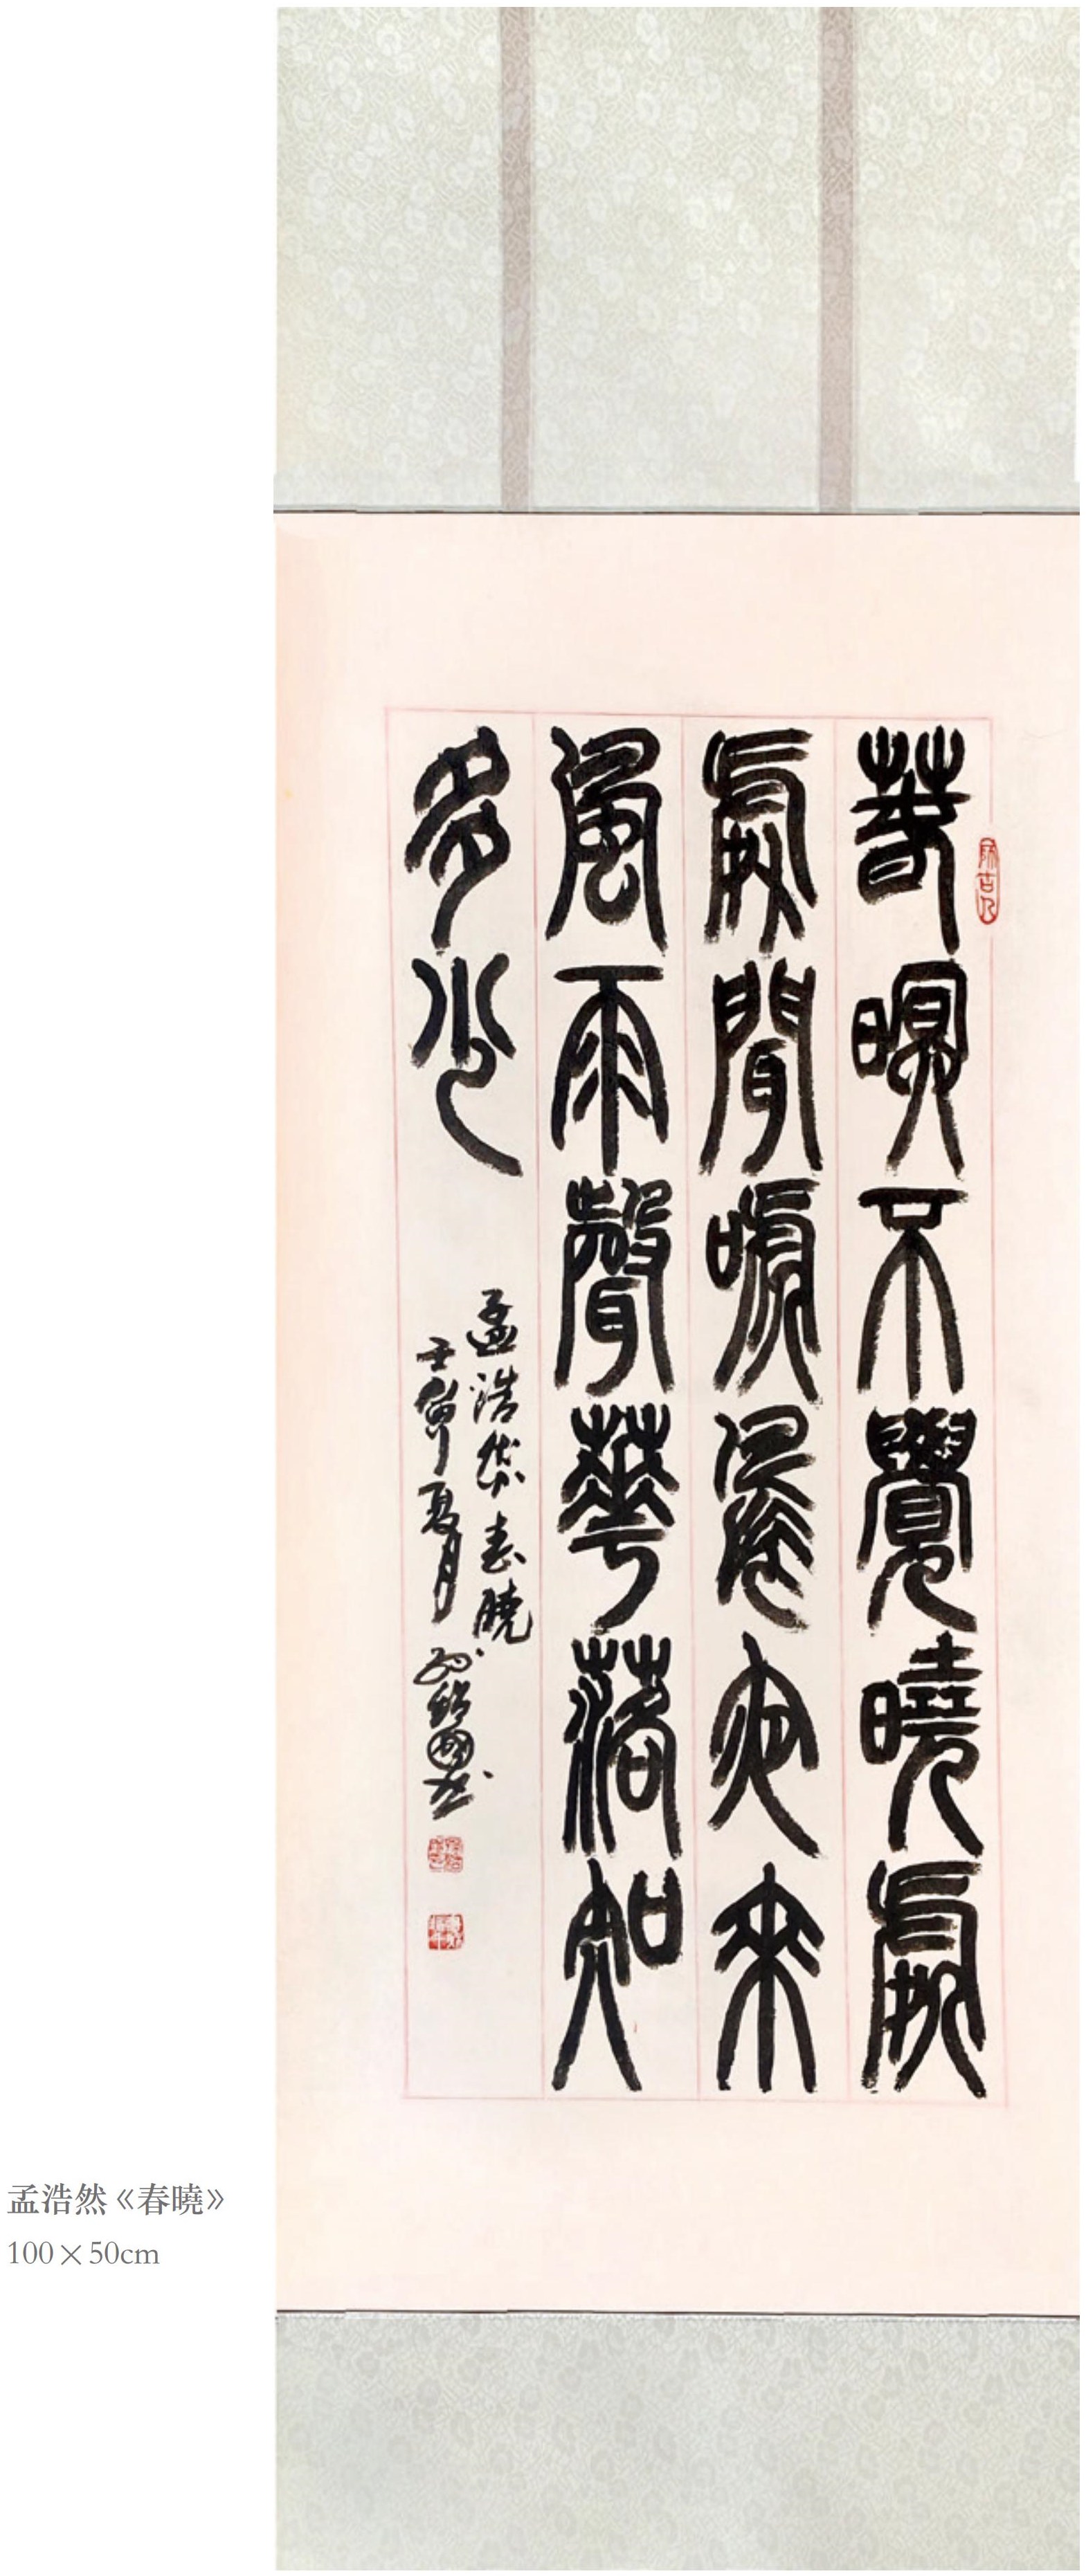 萅瞑不覺曉處
處聞嗁鳥夜來
風雨聲華落知
多少
孟浩然春曉
壬寅夏月
孟浩然《春曉》
100×50cm